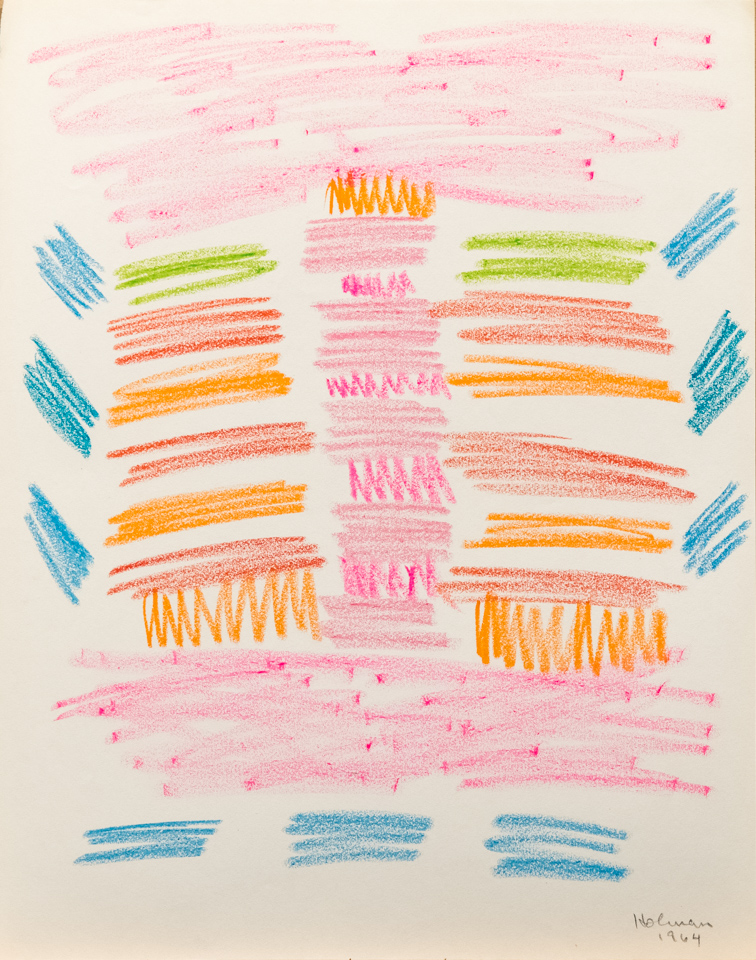 Holman
1964